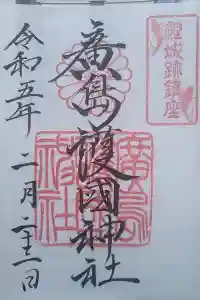 鯉城跡鎮座
廣島護國神社
廣島護國神社
令和五年
二月二十三日